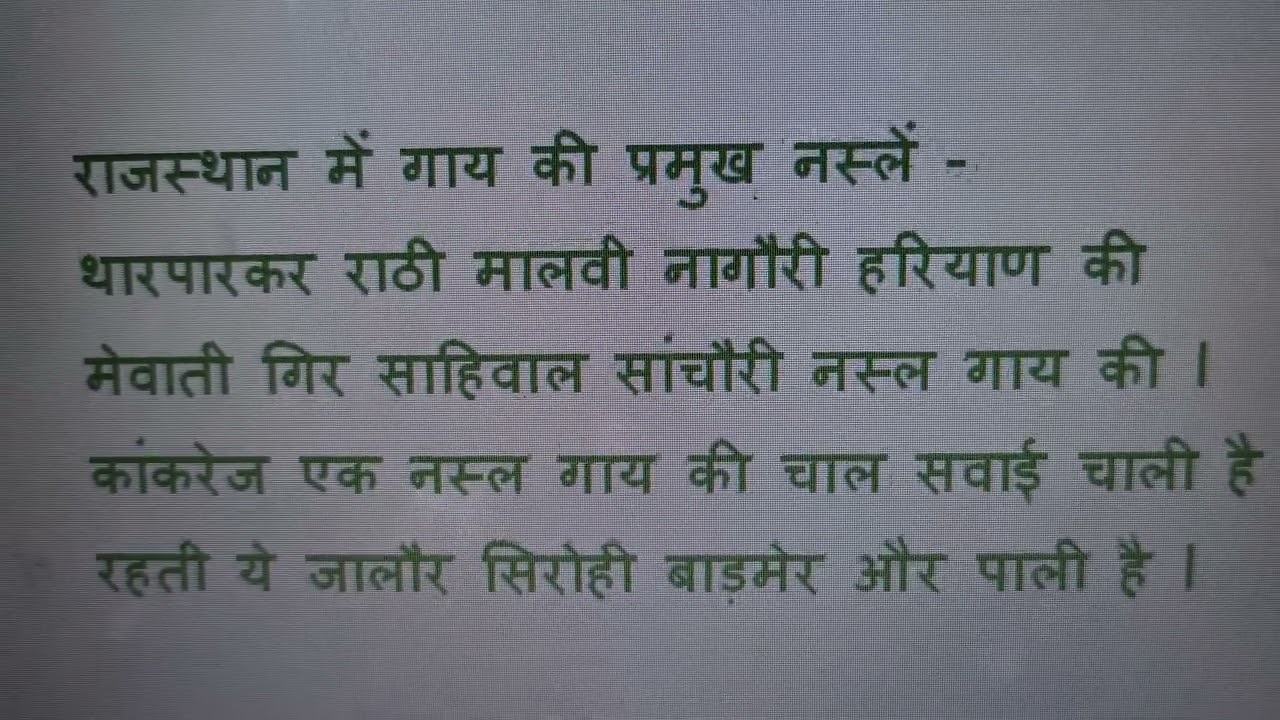 राजस्थान में गाय की प्रमुख नस्लें -
थारपारकर राठी मालवी नागौरी हरियाण की
मेवाती गिर साहिवाल सांचौरी नस्ल गाय की ।
कांकरेज एक नस्ल गाय की चाल सवाई चाली है
रहती ये जालौर सिरोही बाड़मेर और पाली है ।